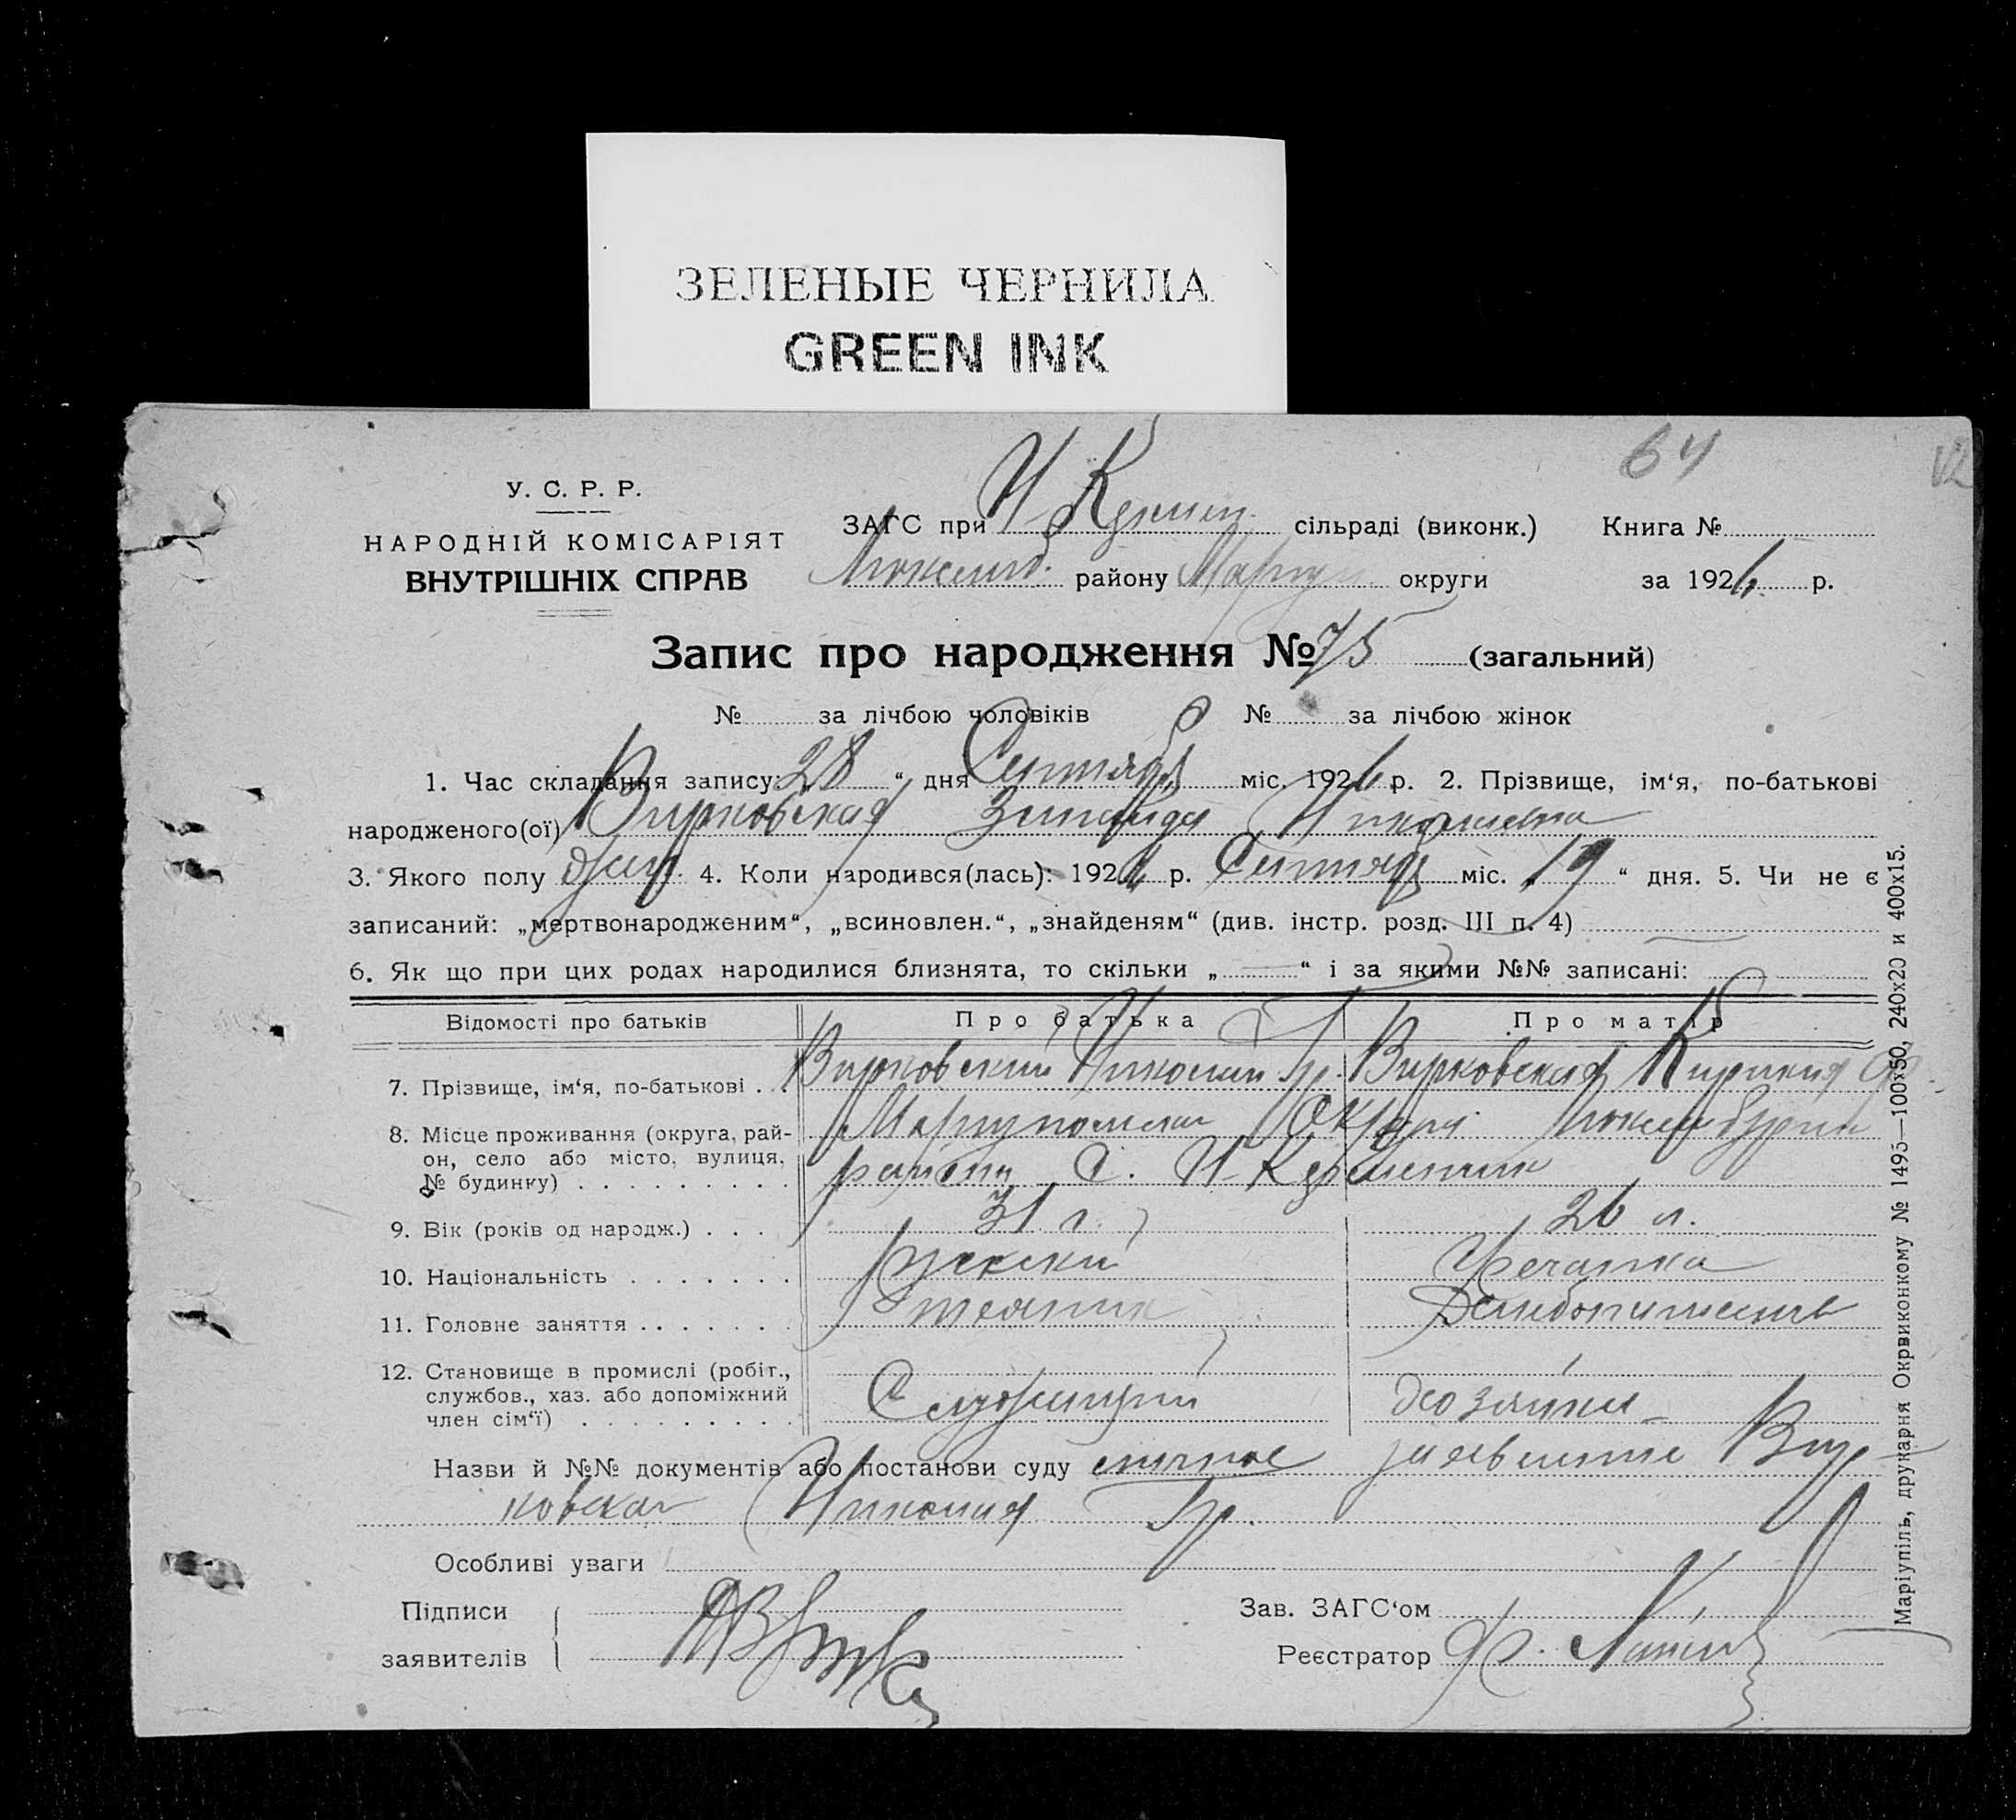 ЗЕЛЕНЫЕ ЧЕРНИЛА
GREEN INK
64
У. С. Р. Р.
НАРОДНІЙ КОМІСАРІЯТ
ВНУТРІШНІХ СПРАВ
ЗАГС при Н-Кермен. сільраді (виконк.) Книга №
району Мариу округи за 1926 р.
Запис про народження № 75 (загальний)
№ за лічбою чоловіків № за лічбою жінок
1. Час складання запису: 28 “ дня Сентября міс. 1926 р. 2. Прізвище, ім‘я, по-батькові
народженого(ої) Вирковская Зинаида Николаевна
3. Якого полу жен. 4. Коли народився(лась): 1926 р. Сентября міс. „19“ дня. 5. Чи не є
записаний: „мертвонародженим“, „всиновлен.“, „знайденям“ (див. інстр. розд. III п. 4)
6. Як що при цих родах народилися близнята, то скільки „ — “ і за якими №№ записані:
Відомості про батьків Про батька Про матір
7. Прізвище, ім‘я, по-батькові . . Вирковский Николай Гр. Вирковская
8. Місце проживання (округа, рай-
он, село або місто, вулиця,
№ будинку) . . . . . . . . .
Мариупольск Округа Люксембургск
района С. Н-Керменчик
9. Вік (років од народж.) . . . . 31 г. 26 л.
10. Національність . . . . . . . русский Гречанка
11. Головне заняття . . . . . . . Домохозяйка
12. Становище в промислі (робіт.,
службов., хаз. або допоміжний
член сім‘ї) . . . . . . . . .
Служащий хозяйка
Назви й №№ документів або постанови суду личное заявление Вир-
ковская Николая Гр.
Особливі уваги
Підписи
заявителів
Зав. ЗАГС‘ом
Реєстратор
Маріупіль, друкарня Окрвиконкому № 1495—100х50, 240х20 и 400х15.